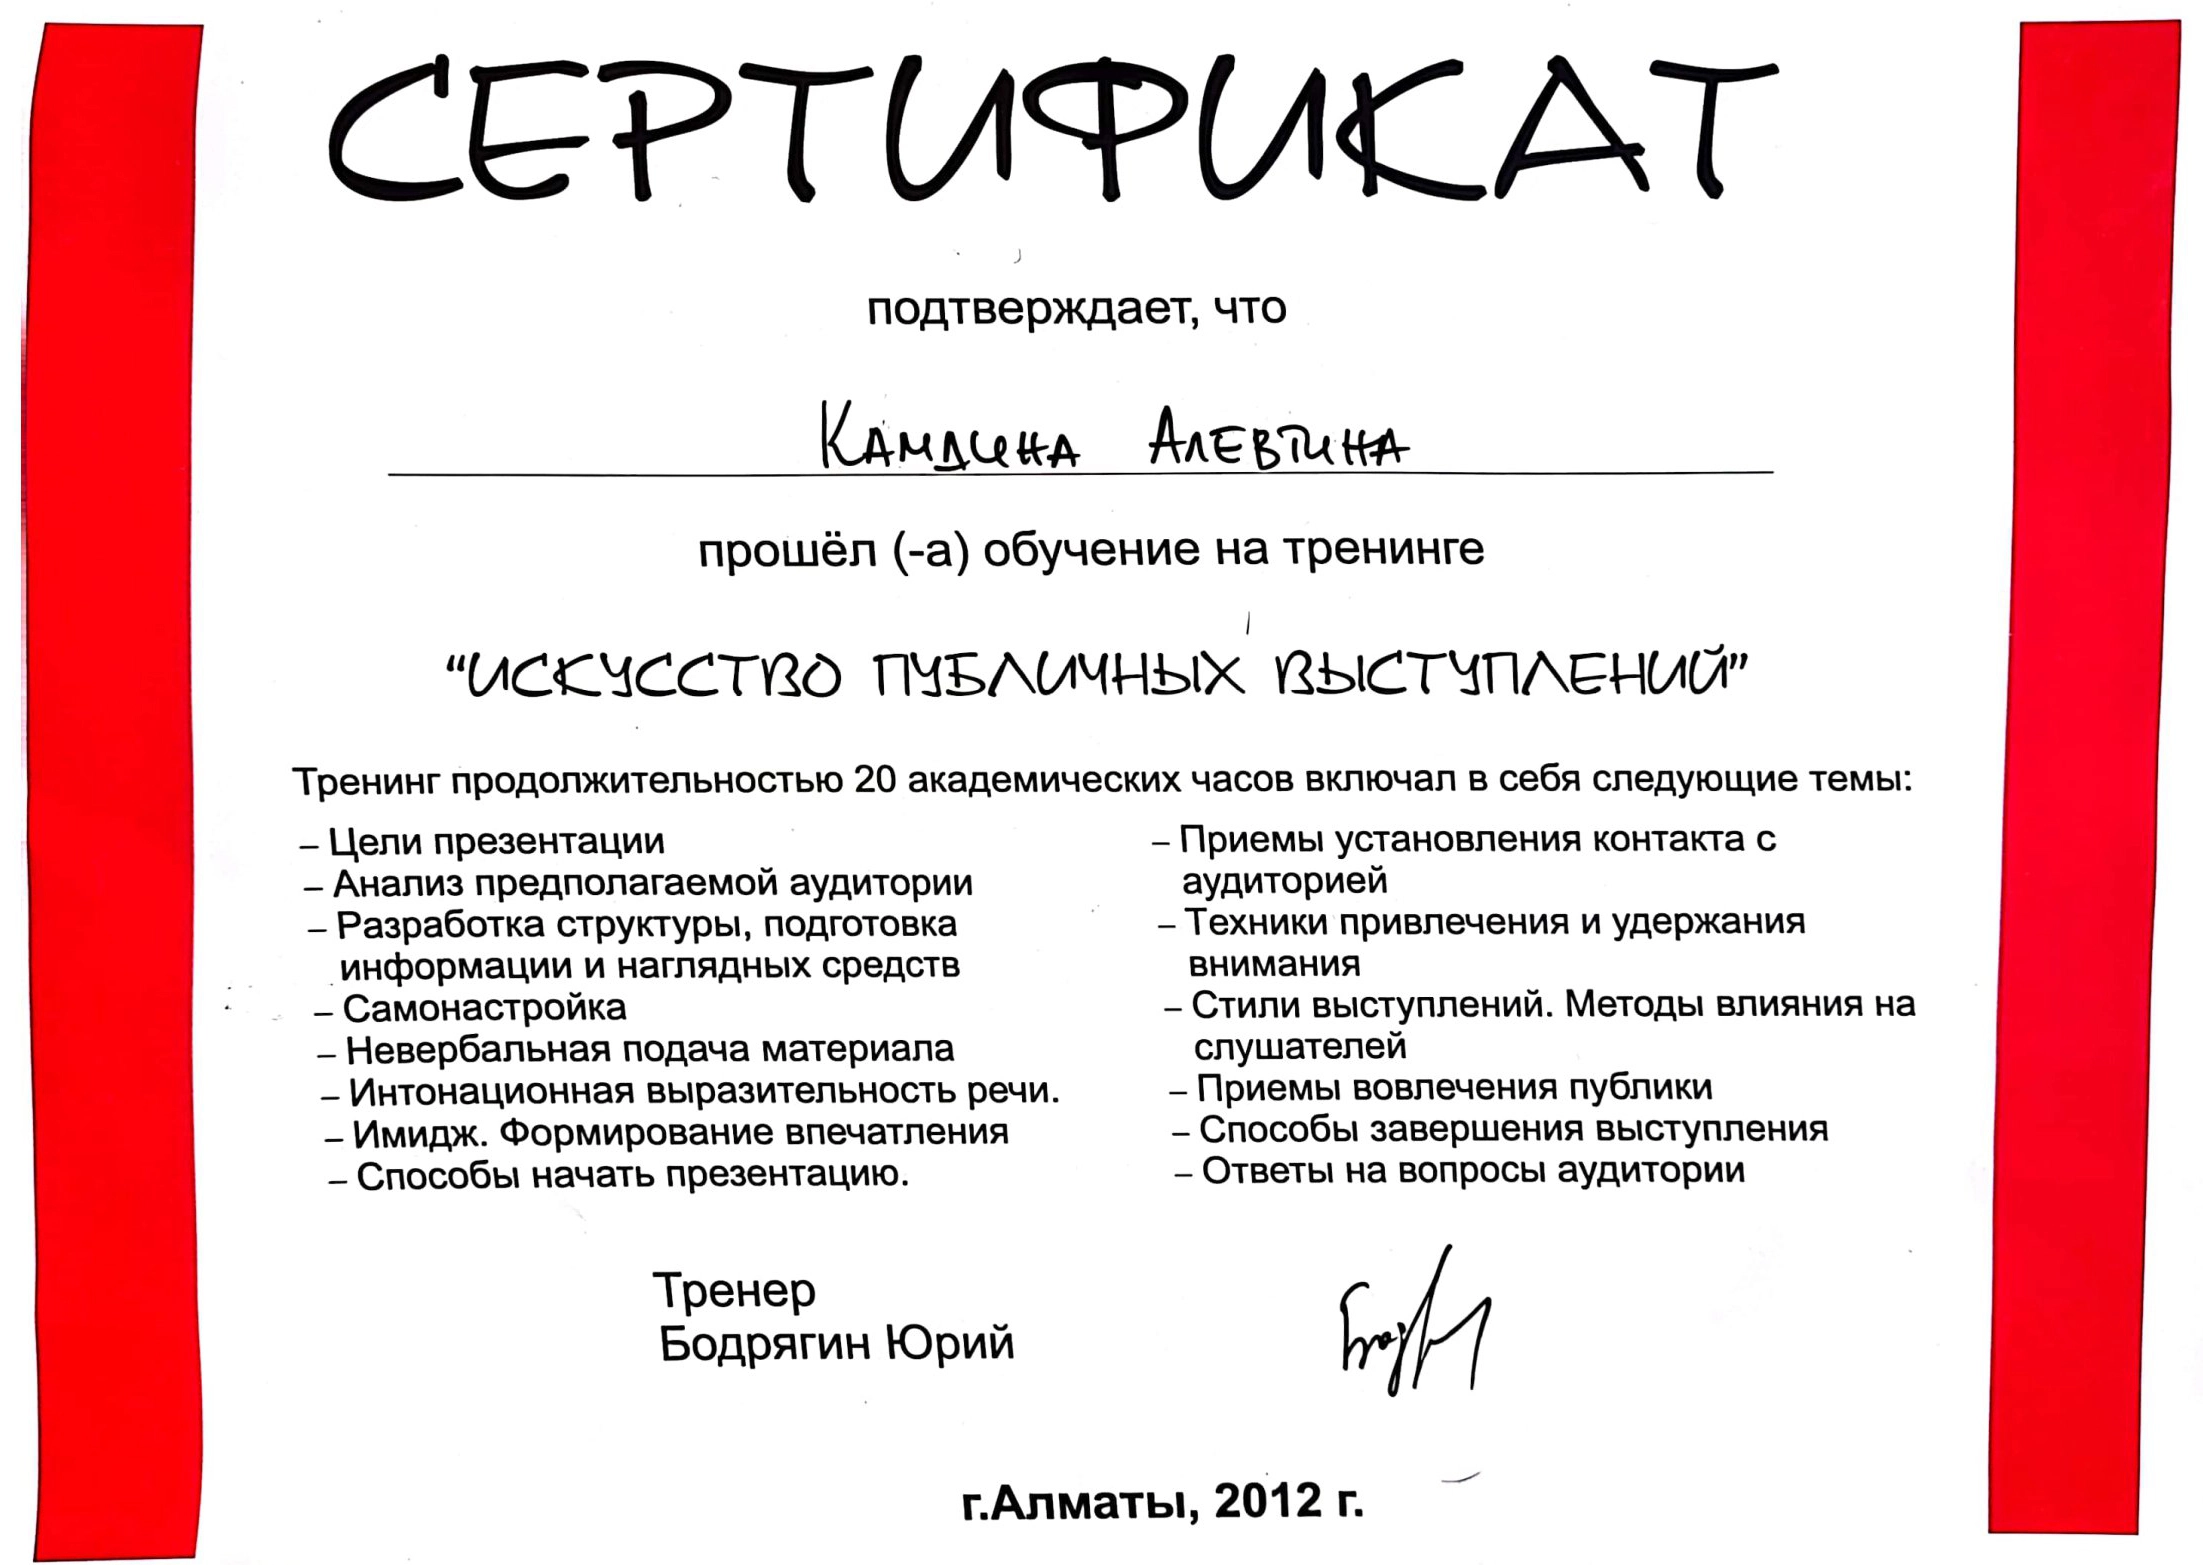 СЕРТИФИКАТ
подтверждает, что
Камдина Алевтина
прошёл (-а) обучение на тренинге
“ИСКУССТВО ПУБЛИЧНЫХ ВЫСТУПЛЕНИЙ”
Тренинг продолжительностью 20 академических часов включал в себя следующие темы:
– Цели презентации
– Анализ предполагаемой аудитории
– Разработка структуры, подготовка
информации и наглядных средств
– Самонастройка
– Невербальная подача материала
– Интонационная выразительность речи.
– Имидж. Формирование впечатления
– Способы начать презентацию.
– Приемы установления контакта с
аудиторией
– Техники привлечения и удержания
внимания
– Стили выступлений. Методы влияния на
слушателей
– Приемы вовлечения публики
– Способы завершения выступления
– Ответы на вопросы аудитории
Тренер
Бодрягин Юрий
г.Алматы, 2012 г.